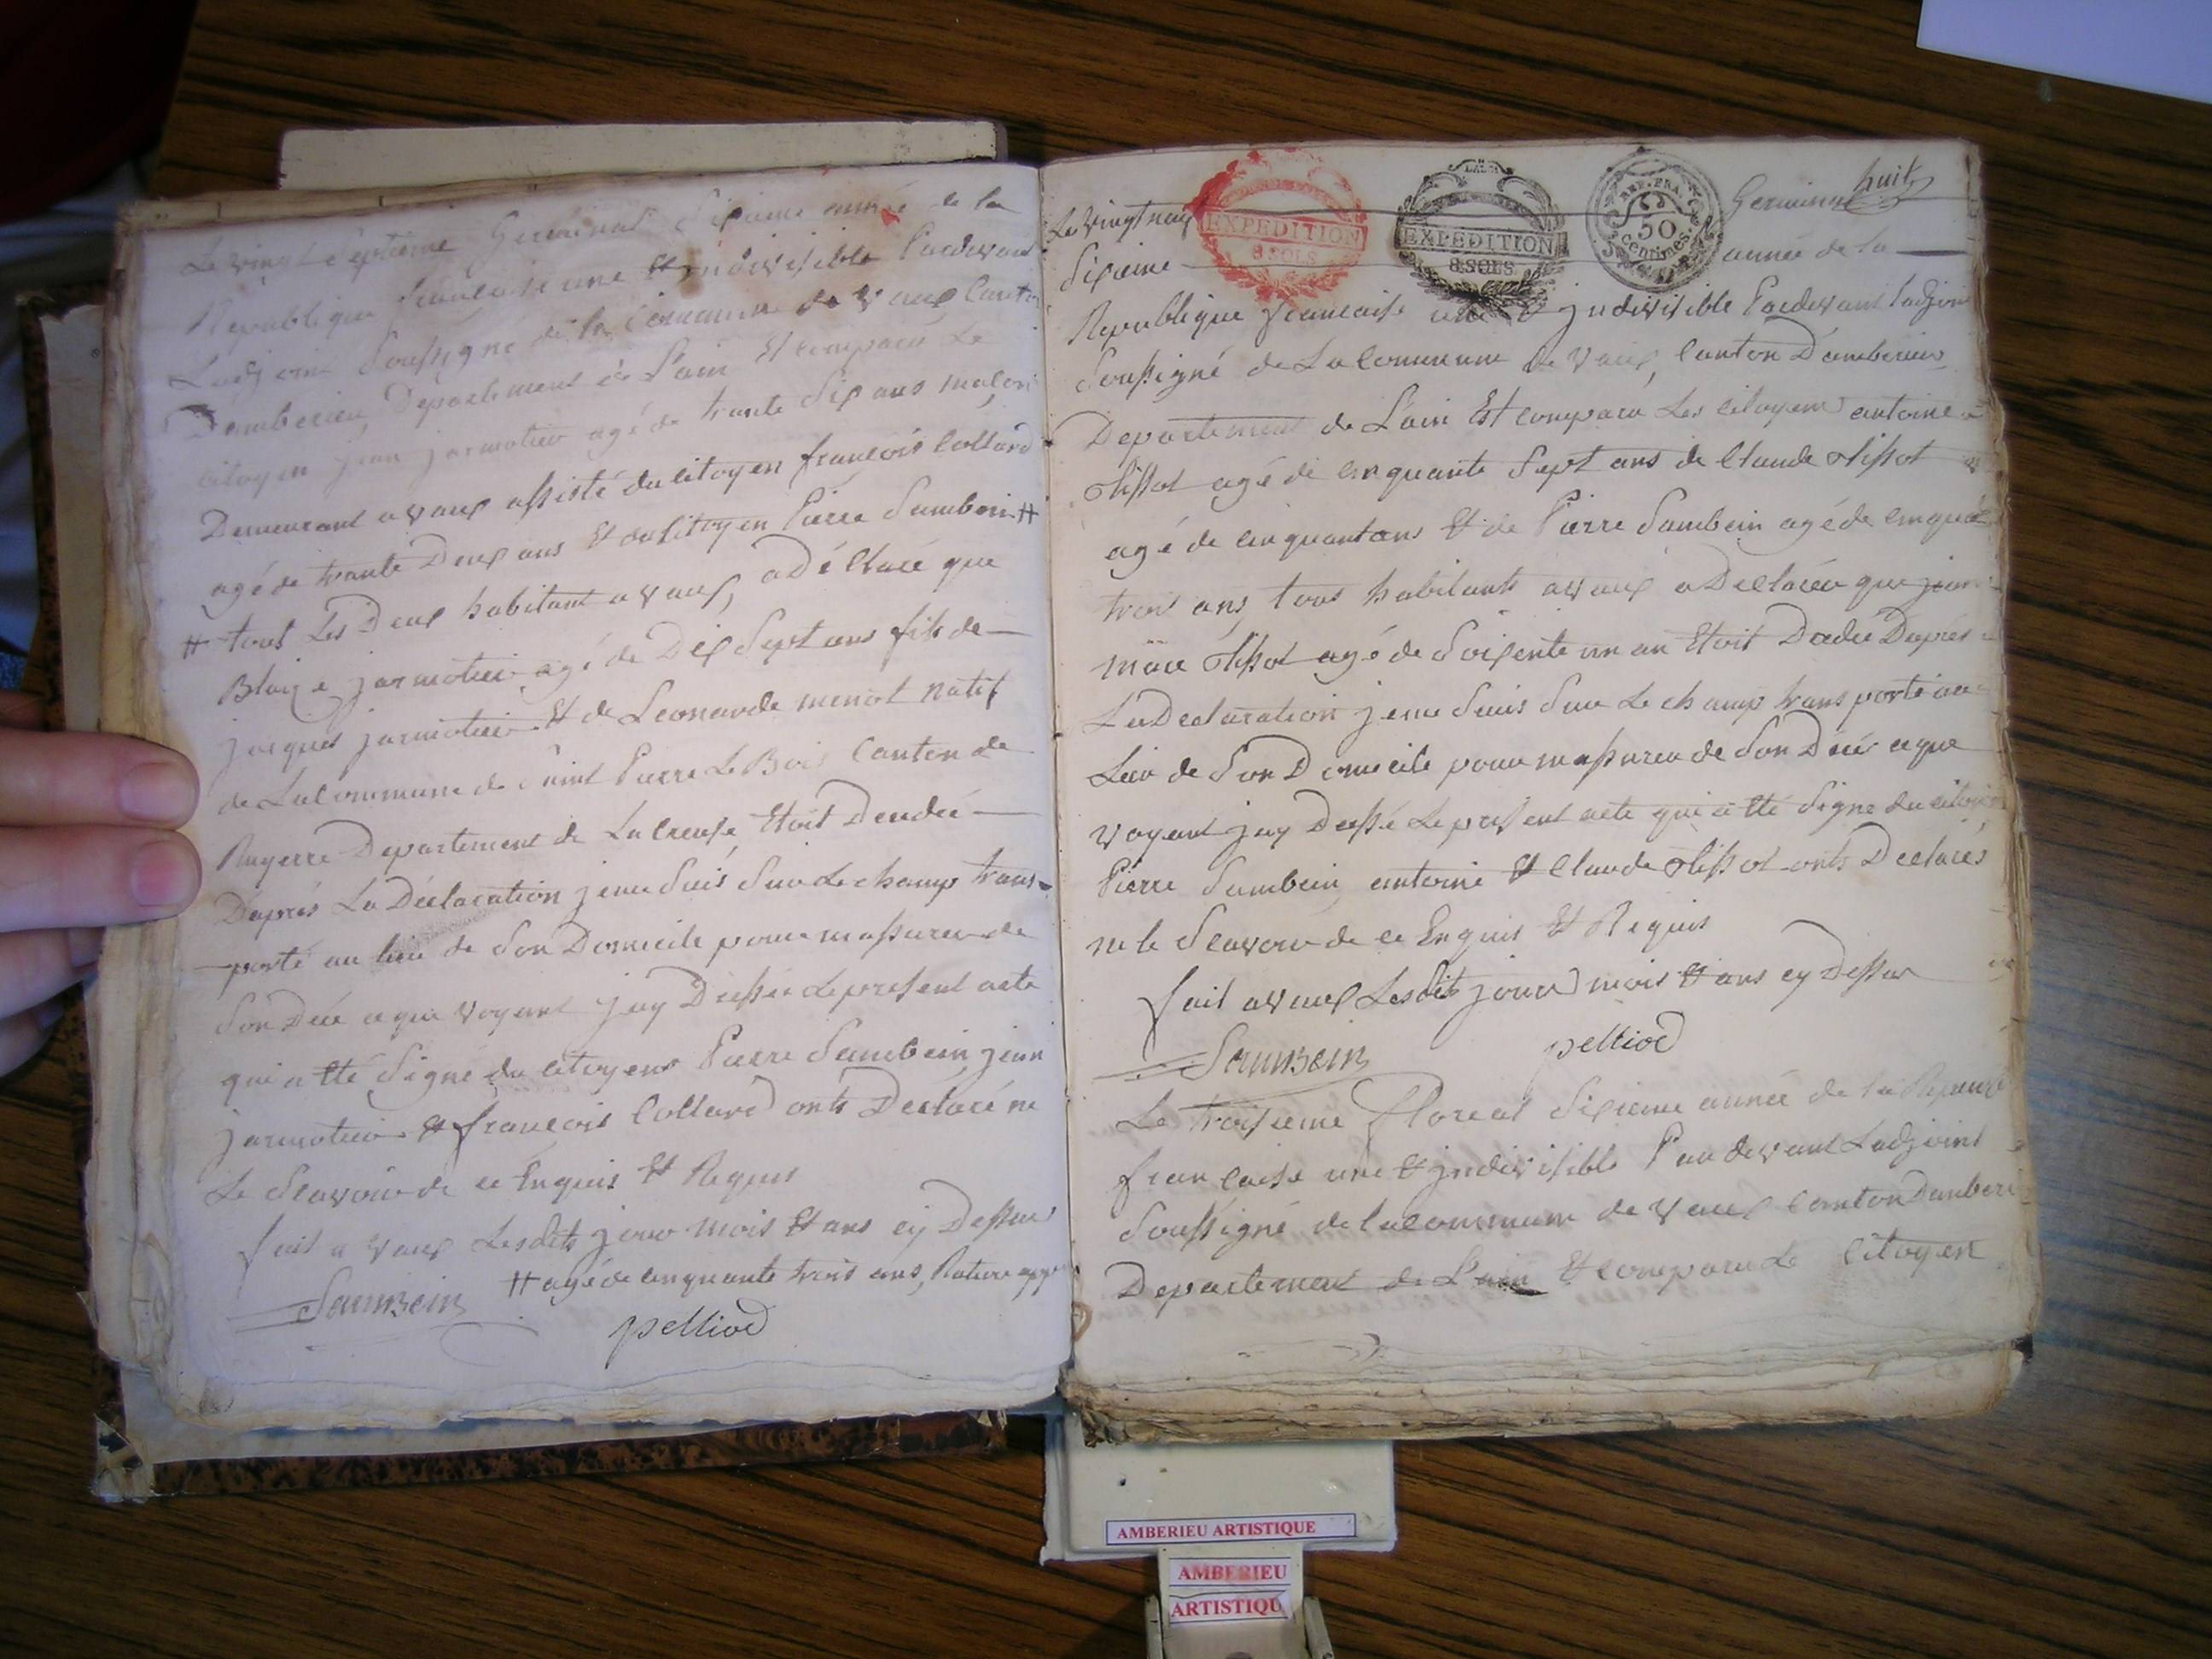 Le vingt septieme Germinal Sixieme année de la
Republique francaise une Et jndivisible Pardevant
Ladjoint Soussigné de la Commune de Vaux Canton
Damberieu Departement de Lain Et comparu Le
citoyen jean jarmotier agé de trante Six ans maçon
Demeurant a vaux assisté du citoyen francois Collard
agé de trante Deux ans Et du citoyen Pierre Sambein #
# tout Les Deux habitant a vaux, a Déclaré que
Blaize jarmotier agé de Dix Sept ans fils de
jacques jarmotier Et de Leonarde menot natif
de La Commune de Saint Pierre Le Bois Canton de
Royerre Departement de La Creuse Etoit Decedée
Daprés La Déclaration je me Suis Sur Le champ trans-
porté au lieu de Son Domicile pour massurer de
Son Décé a que voyant jay Dressée Le present acte
qui a Eté Signé du citoyens Pierre Sambein jean
jarmotier Et francois Collard onts Declaré ne
Le Scavoir de ce Enquis Et Requis
fait a vaux Lesdits jour mois Et ans cy Dessus
# agé de cinquante trois ans,
Sambein
pelliod
Le vingt neuf Germinal huit
EXPEDITION
8 SOLS
EXPEDITION
8 SOLS
REP. FRA.
50
centimes.
Sixieme année de la
Republique francaise une Et jndivisible Pardevant Ladjoint
Soussigné de La Commune de Vaux, Canton Damberieu
Departement de Lain Et comparu Les citoyens antoine
tissot agé de cinquante Sept ans de Claude tissot
agé de cinquantans Et de Pierre Sambein agé de cinquante
trois ans, tous habitants a vaux a Declarée que jean
marie tissot agé de Soixente un an Etoit Decedé Daprés
La Declaration je me Suis Sur Le champ transporté au
Lieu de Son Domicile pour massurer de Son Décé a que
voyant jay Dressé Le present acte qui a Eté Signe du citoyen
Pierre Sambein antoine Et Claude tissot onts Declarés
ne le Scavoir de ce Enquis Et Requis
fait a vaux Lesdit jours mois Et ans cy Dessus
Sambein pelliod
Le troisieme floreal Sixieme année de la Republ
francaise une Et jndivisible Pardevant Ladjoint
Soussigné de la Commune de Vaux Canton Damberi
Departement de Lain Et comparu Le Citoyen
AMBERIEU ARTISTIQUE
AMBERIEU
ARTISTIQU